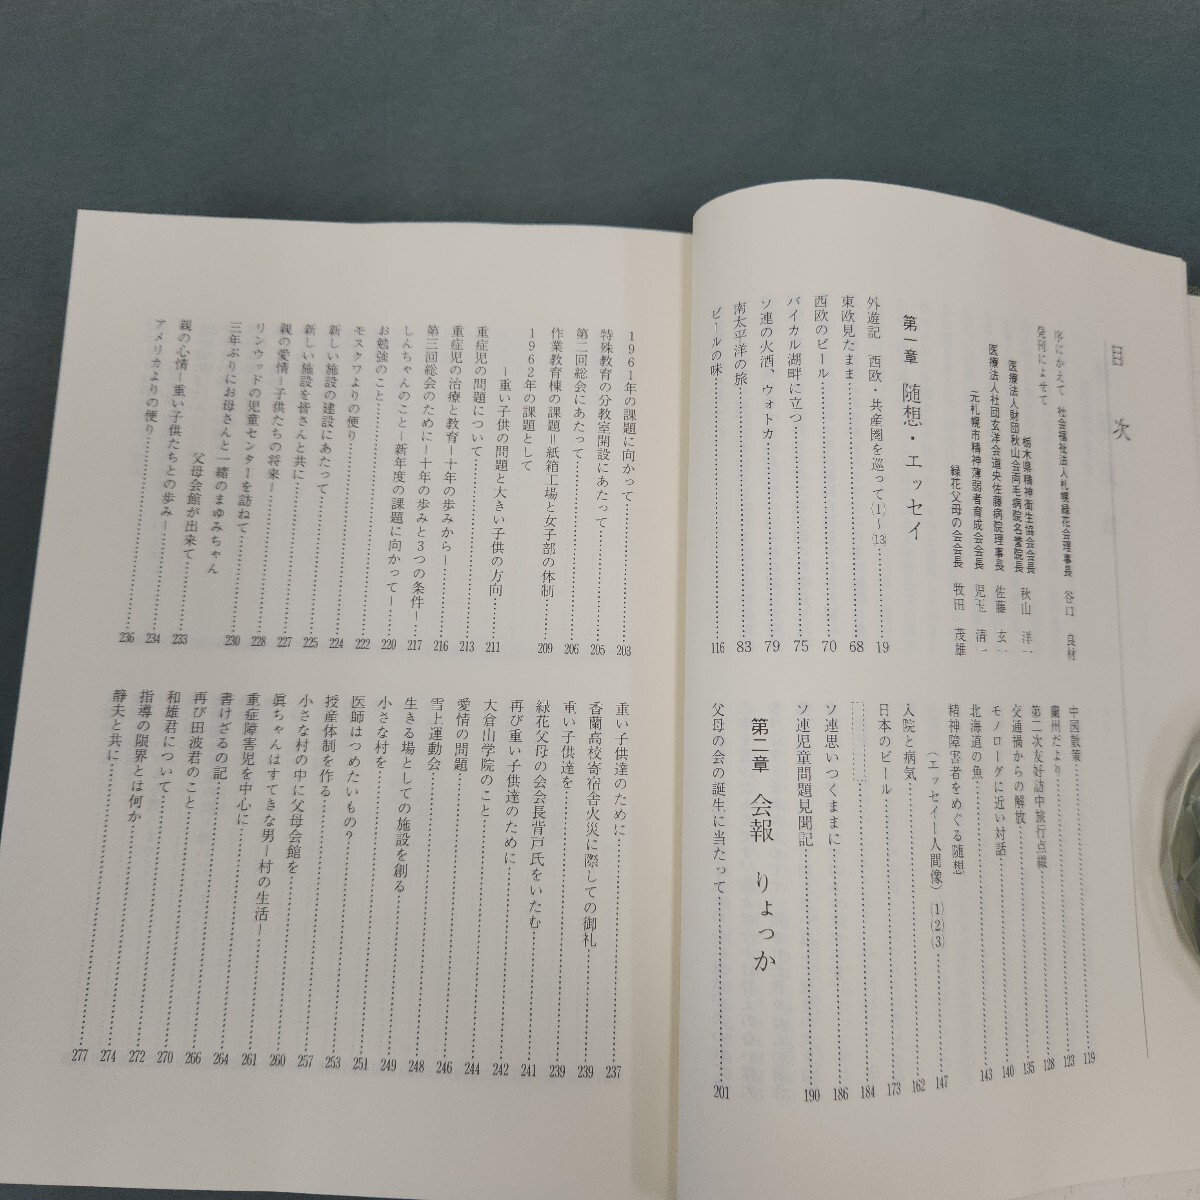 目 次
序にかえて 社会福祉法人札幌緑花会理事長 谷口 良材
発刊によせて
栃木県精神衛生協会会長
医療法人財団秋山会両毛病院名誉院長 秋山 洋一
医療法人社団玄洋会道央佐藤病院理事長 佐藤 玄一
元札幌市精神薄弱者育成会会長 児玉 清一
緑花父母の会会長 牧田 茂雄
第一章 随想・エッセイ
外遊記 西欧・共産圏を巡って(1)〜(13)……19
東欧見たまま……68
西欧のビール……70
バイカル湖畔に立つ……75
ソ連の火酒、ウォトカ……79
南太平洋の旅……83
ビールの味……116
中国散策……119
蘭州だより……123
第二次友好訪中旅行点綴……128
交通禍からの解放……135
モノローグに近い対話……140
北海道の魚……143
精神障害者をめぐる随想
(エッセイー人間像)(1)(2)(3)……147
入院と病気……162
日本のビール……173
……184
ソ連思いつくままに……186
ソ連児童問題見聞記……190
第二章 会報 りょっか
父母の会の誕生に当たって……201
1961年の課題に向かって……203
特殊教育の分教室開設にあたって……205
第二回総会にあたって……206
作業教育棟の課題＝紙箱工場と女子部の体制……209
1962年の課題として
─重い子供の問題と大きい子供の方向─……211
重症児の問題について……213
重症児の治療と教育─十年の歩みから─……216
第三回総会のために─十年の歩みと3つの条件─……217
しんちゃんのこと─新年度の課題に向かって─……220
お勉強のこと……222
モスクワよりの便り……224
新しい施設の建設にあたって……225
新しい施設を皆さんと共に……227
親の愛情─子供たちの将来─……228
リンウッドの児童センターを訪ねて……230
三年ぶりにお母さんと一緒のまゆみちゃん
父母会館が出来て……233
親の心情─重い子供たちとの歩み─……234
アメリカよりの便り……236
重い子供達のために……237
香蘭高校寄宿舎火災に際しての御礼……239
重い子供達を……239
緑花父母の会会長背戸氏をいたむ……241
再び重い子供達のために……242
大倉山学院のこと……244
愛情の問題……246
雪上運動会……248
生きる場としての施設を創る……249
小さな村を……251
医師はつめたいもの？……253
授産体制を作る……257
小さな村の中に父母会館を……260
眞ちゃんはすてきな男─村の生活─……261
重症障害児を中心に……264
書けざるの記……266
再び田波君のこと……270
和雄君について……272
指導の限界とは何か……274
静夫と共に……277